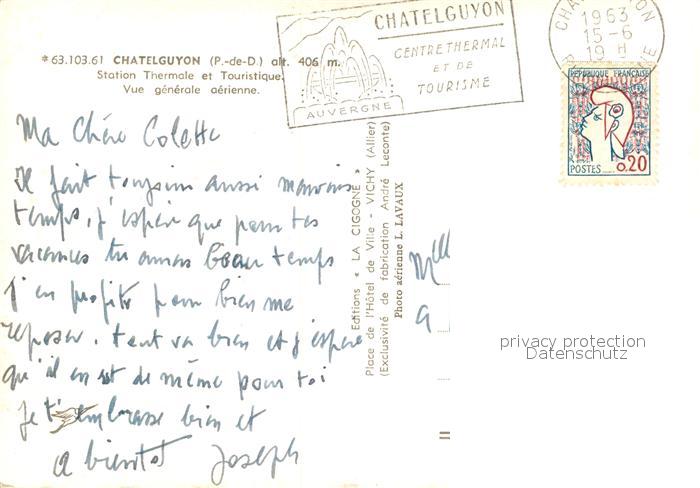 * 63.103.61 CHATELGUYON (P.-de-D.) alt. 406 m.
Station Thermale et Touristique.
Vue générale aérienne.
CHATELGUYON
CENTRE THERMAL
ET DE
TOURISME
AUVERGNE
1963
15-6
19 H
REPUBLIQUE FRANÇAISE
POSTES
0,20
Ma Chère Colette
Il fait toujours aussi mauvais
temps, j'espère que pour tes
vacances tu auras beau temps
J'en profite pour bien me
reposer. tout va bien et j'espère
qu'il en est de même pour toi
Je t'embrasse bien et
a bientot Joseph
Editions « LA CIGOGNE »
Place de l'Hôtel de Ville - VICHY (Allier)
(Exclusivité de fabrication André Leconte)
Photo aérienne L. LAVAUX
Mlle
privacy protection
Datenschutz